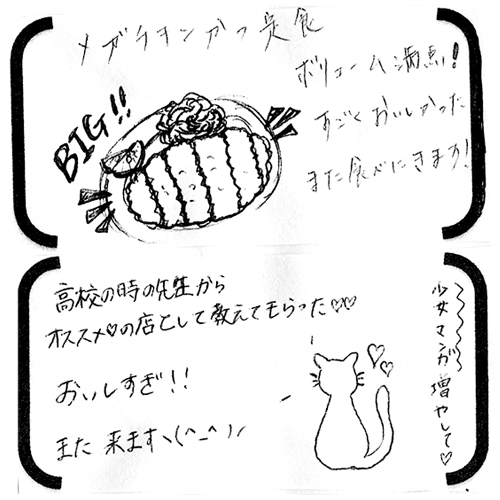 メガチキンカツ定食
ボリューム満点!
すごくおいしかった
また食べにきます!
BIG!!
高校の時の先生から
オススメ♡の店として教えてもらった♡♡
おいしすぎ!!
また来ますヽ(^_^)ノ
少女マンガ増やして♡